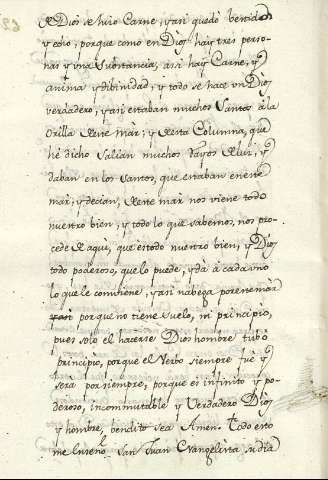 Dios se hizo Carne, y asi quedò benido
y esto, porque como en Dios hay tres perso-
nas y vna Substancia, asi hay Carne, y
anima y dibinidad, y todo se hace vn Dios
verdadero, y asi estaban muchos Santos à la
Orilla deste mar, y desta Columna, que
hè dicho salian muchos rayos de luz, y
daban en los Santos, que estaban en este
mar, y decian, deste mar nos viene todo
nuestro bien, y todo lo que sabemos, nos pro-
cede de aqui, que es todo nuestro bien, y Dios
todo poderoso, que lo puede, y dà à cada vno
lo que le combiene, y asi nabega por este mar
porque no tiene suelo, ni principio,
pues solo el hacerse Dios hombre tubo
principio, porque el Verbo siempre fue y
serà por siempre, porque es infinito y po-
deroso, incommutable y Verdadero Dios
y hombre, bendito sea Amen. Todo esto
me enseñò San Juan Evangelista su dia